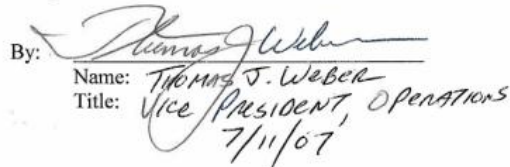 By: Thomas J Weber
Name: THOMAS J. WEBER
Title: VICE PRESIDENT, OPERATIONS
7/11/07